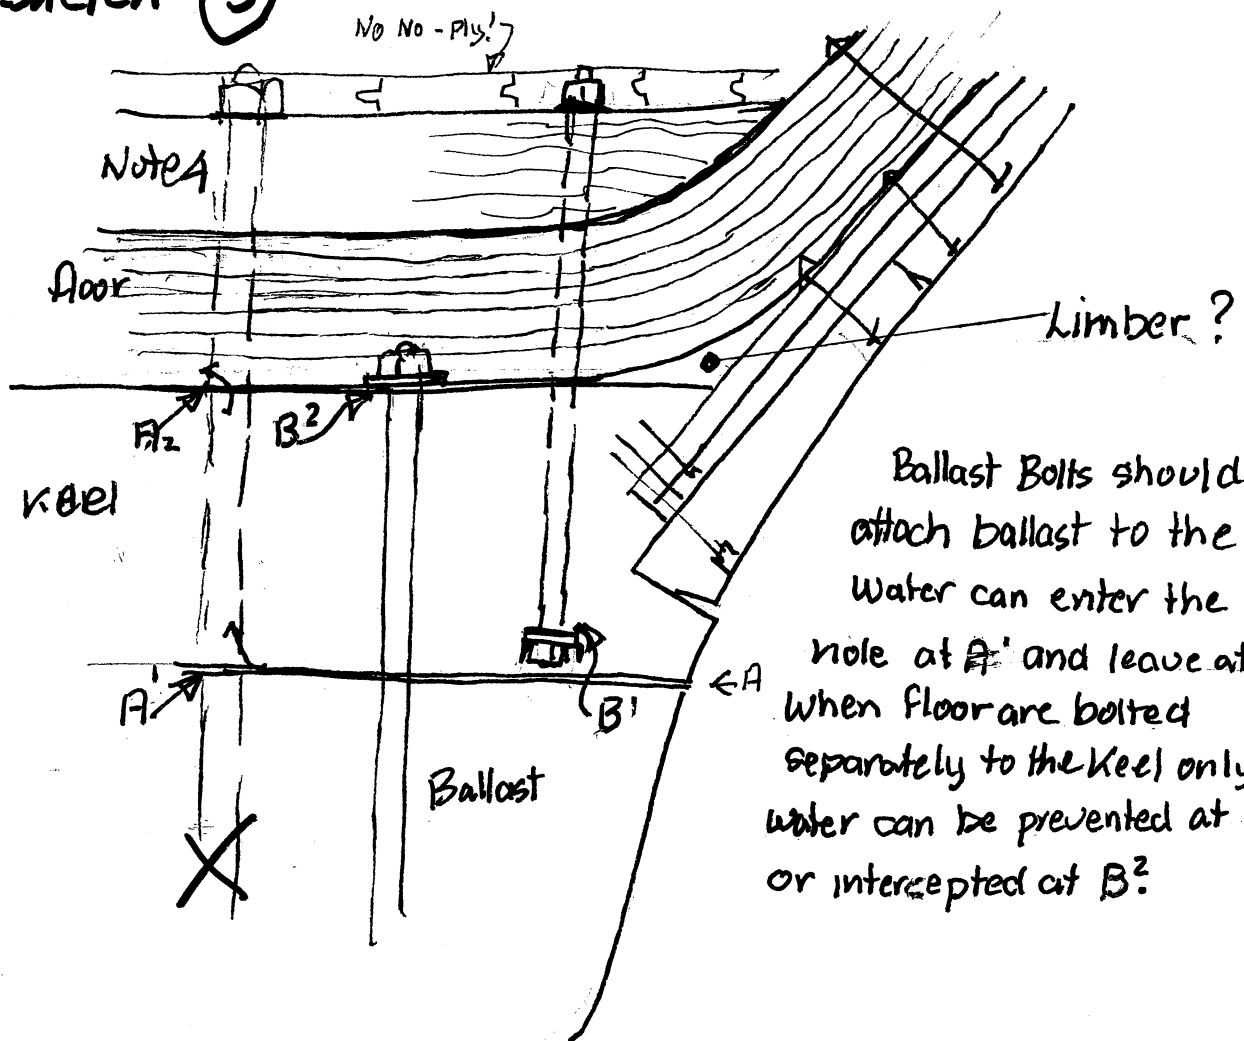 Sketch 3
No No-Ply!
Note 4
floor
Limber ?
A2
B2
Keel
Ballast Bolts should
attach ballast to the
water can enter the
hole at A' and leave at
A'
B'
← A
When floor are bolted
separately to the Keel only
Ballast
water can be prevented at
or intercepted at B².